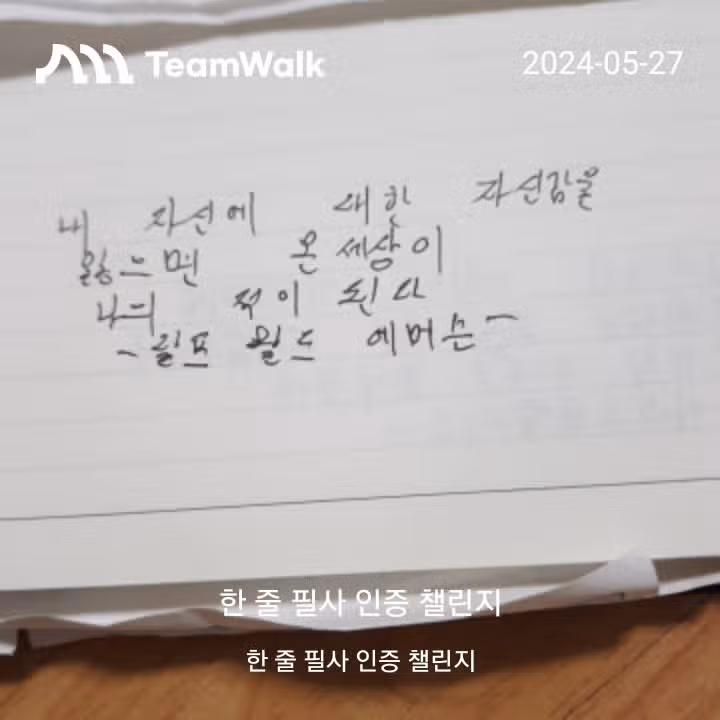 TeamWalk
2024-05-27
내 자신에 대한 자신감을
잃으면 온 세상이
나의 적이 된다
- 랄프 왈도 에머슨 -
한 줄 필사 인증 챌린지
한 줄 필사 인증 챌린지